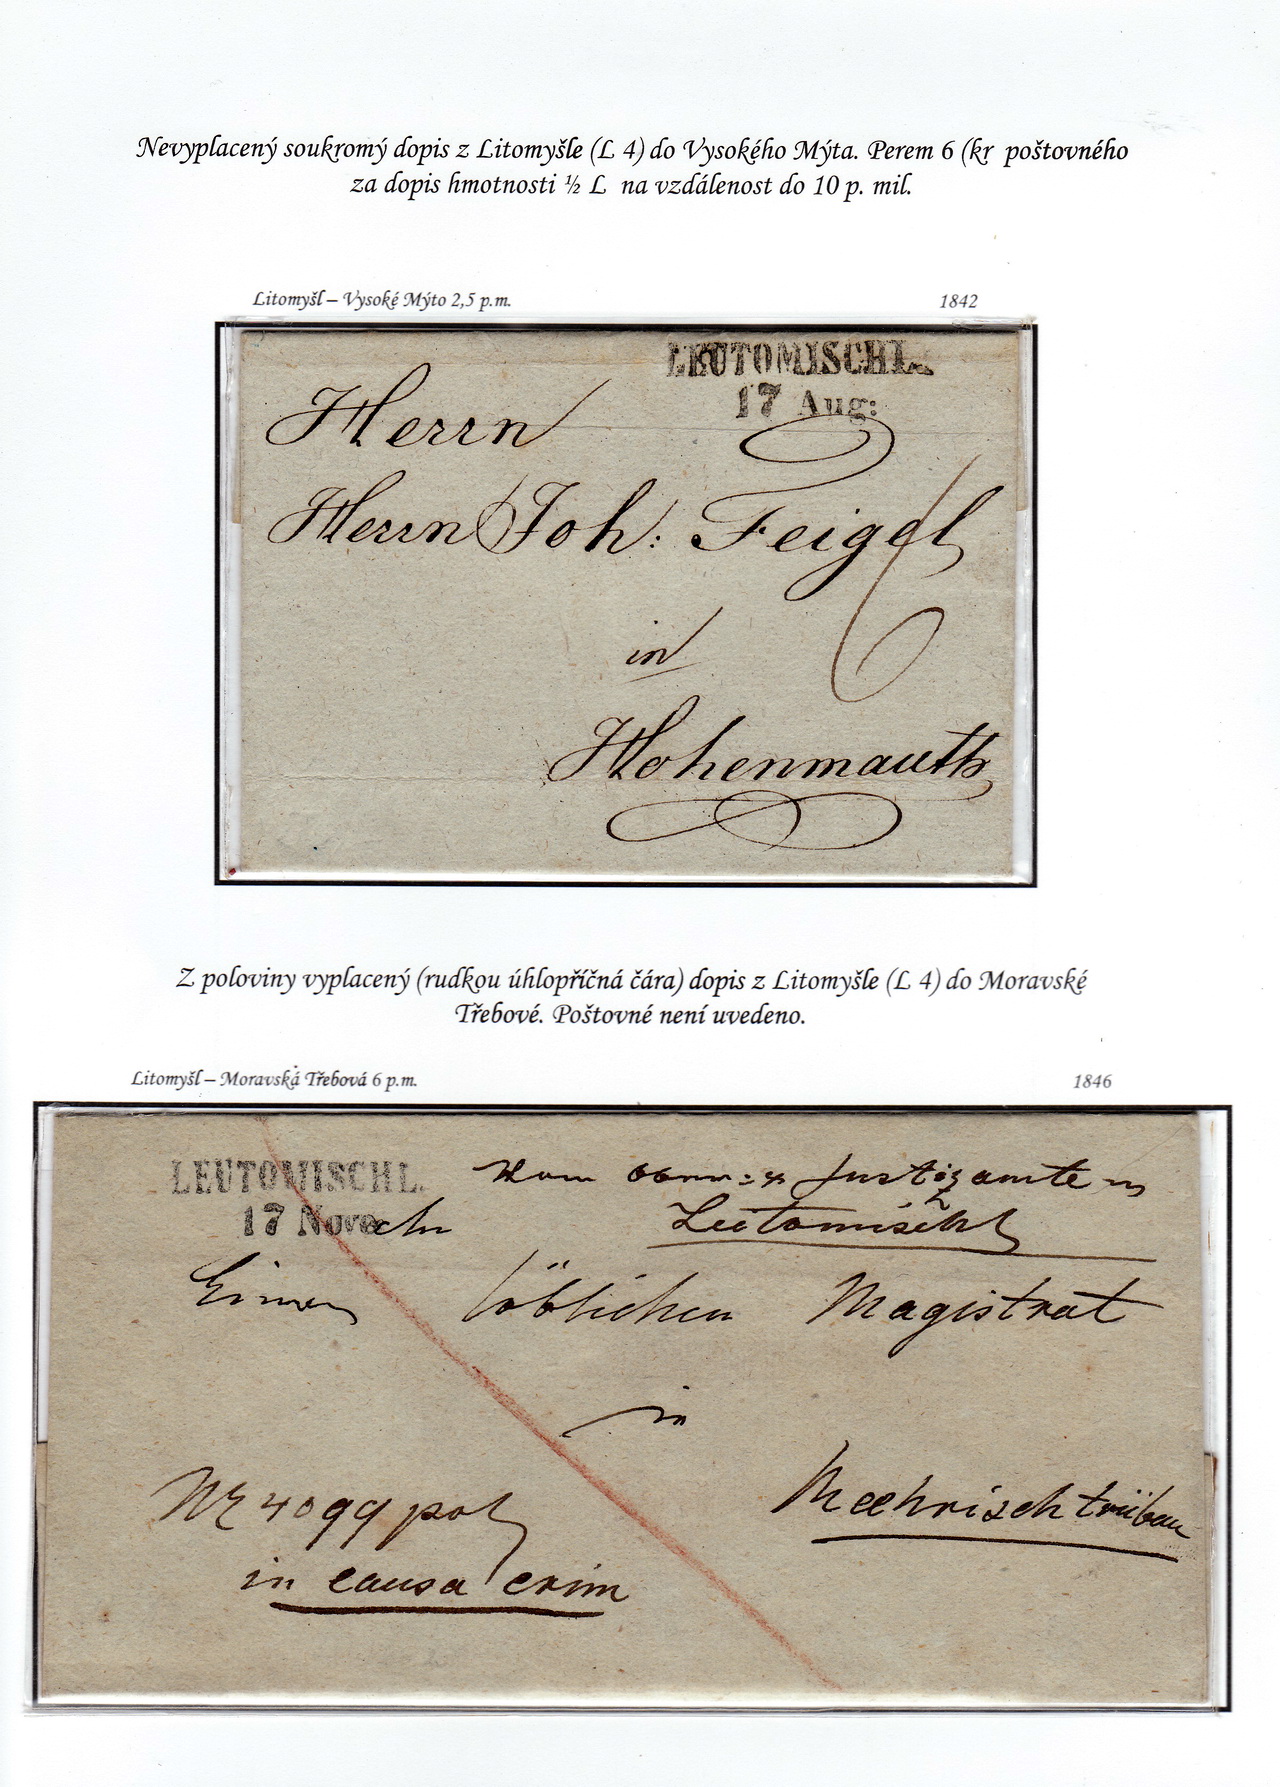 Nevyplacený soukromý dopis z Litomyšle (L 4) do Vysokého Mýta. Perem 6 (kr poštovného
za dopis hmotnosti ½ L na vzdálenost do 10 p. mil.
Litomyšl – Vysoké Mýto 2,5 p.m. 1842
LEUTOMISCHL.
17 Aug:
Herrn
Herrn Joh: Feigel
6
in
Hohenmauth
Z poloviny vyplacený (rudkou úhlopříčná čára) dopis z Litomyšle (L 4) do Moravské
Třebové. Poštovné není uvedeno.
Litomyšl – Moravská Třebová 6 p.m. 1846
LEUTOMISCHL.
Vom Justizamte
17 Nove
Leutomischl
Einen löblichen Magistrat
in
Nr 4099 pol
Maehrischtrübau
in causa crim